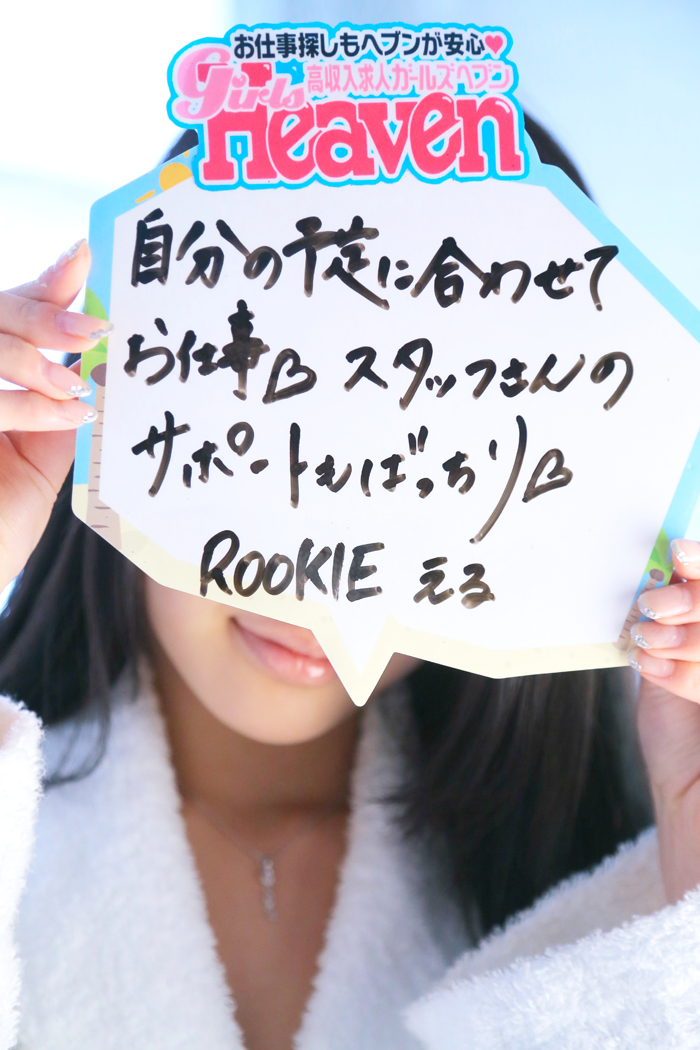 お仕事探しもヘブンが安心♥
高収入求人ガールズヘブン
Girls
Heaven
自分の予定に合わせて
お仕事♡ スタッフさんの
サポートもばっちり♡
ROOKIE える